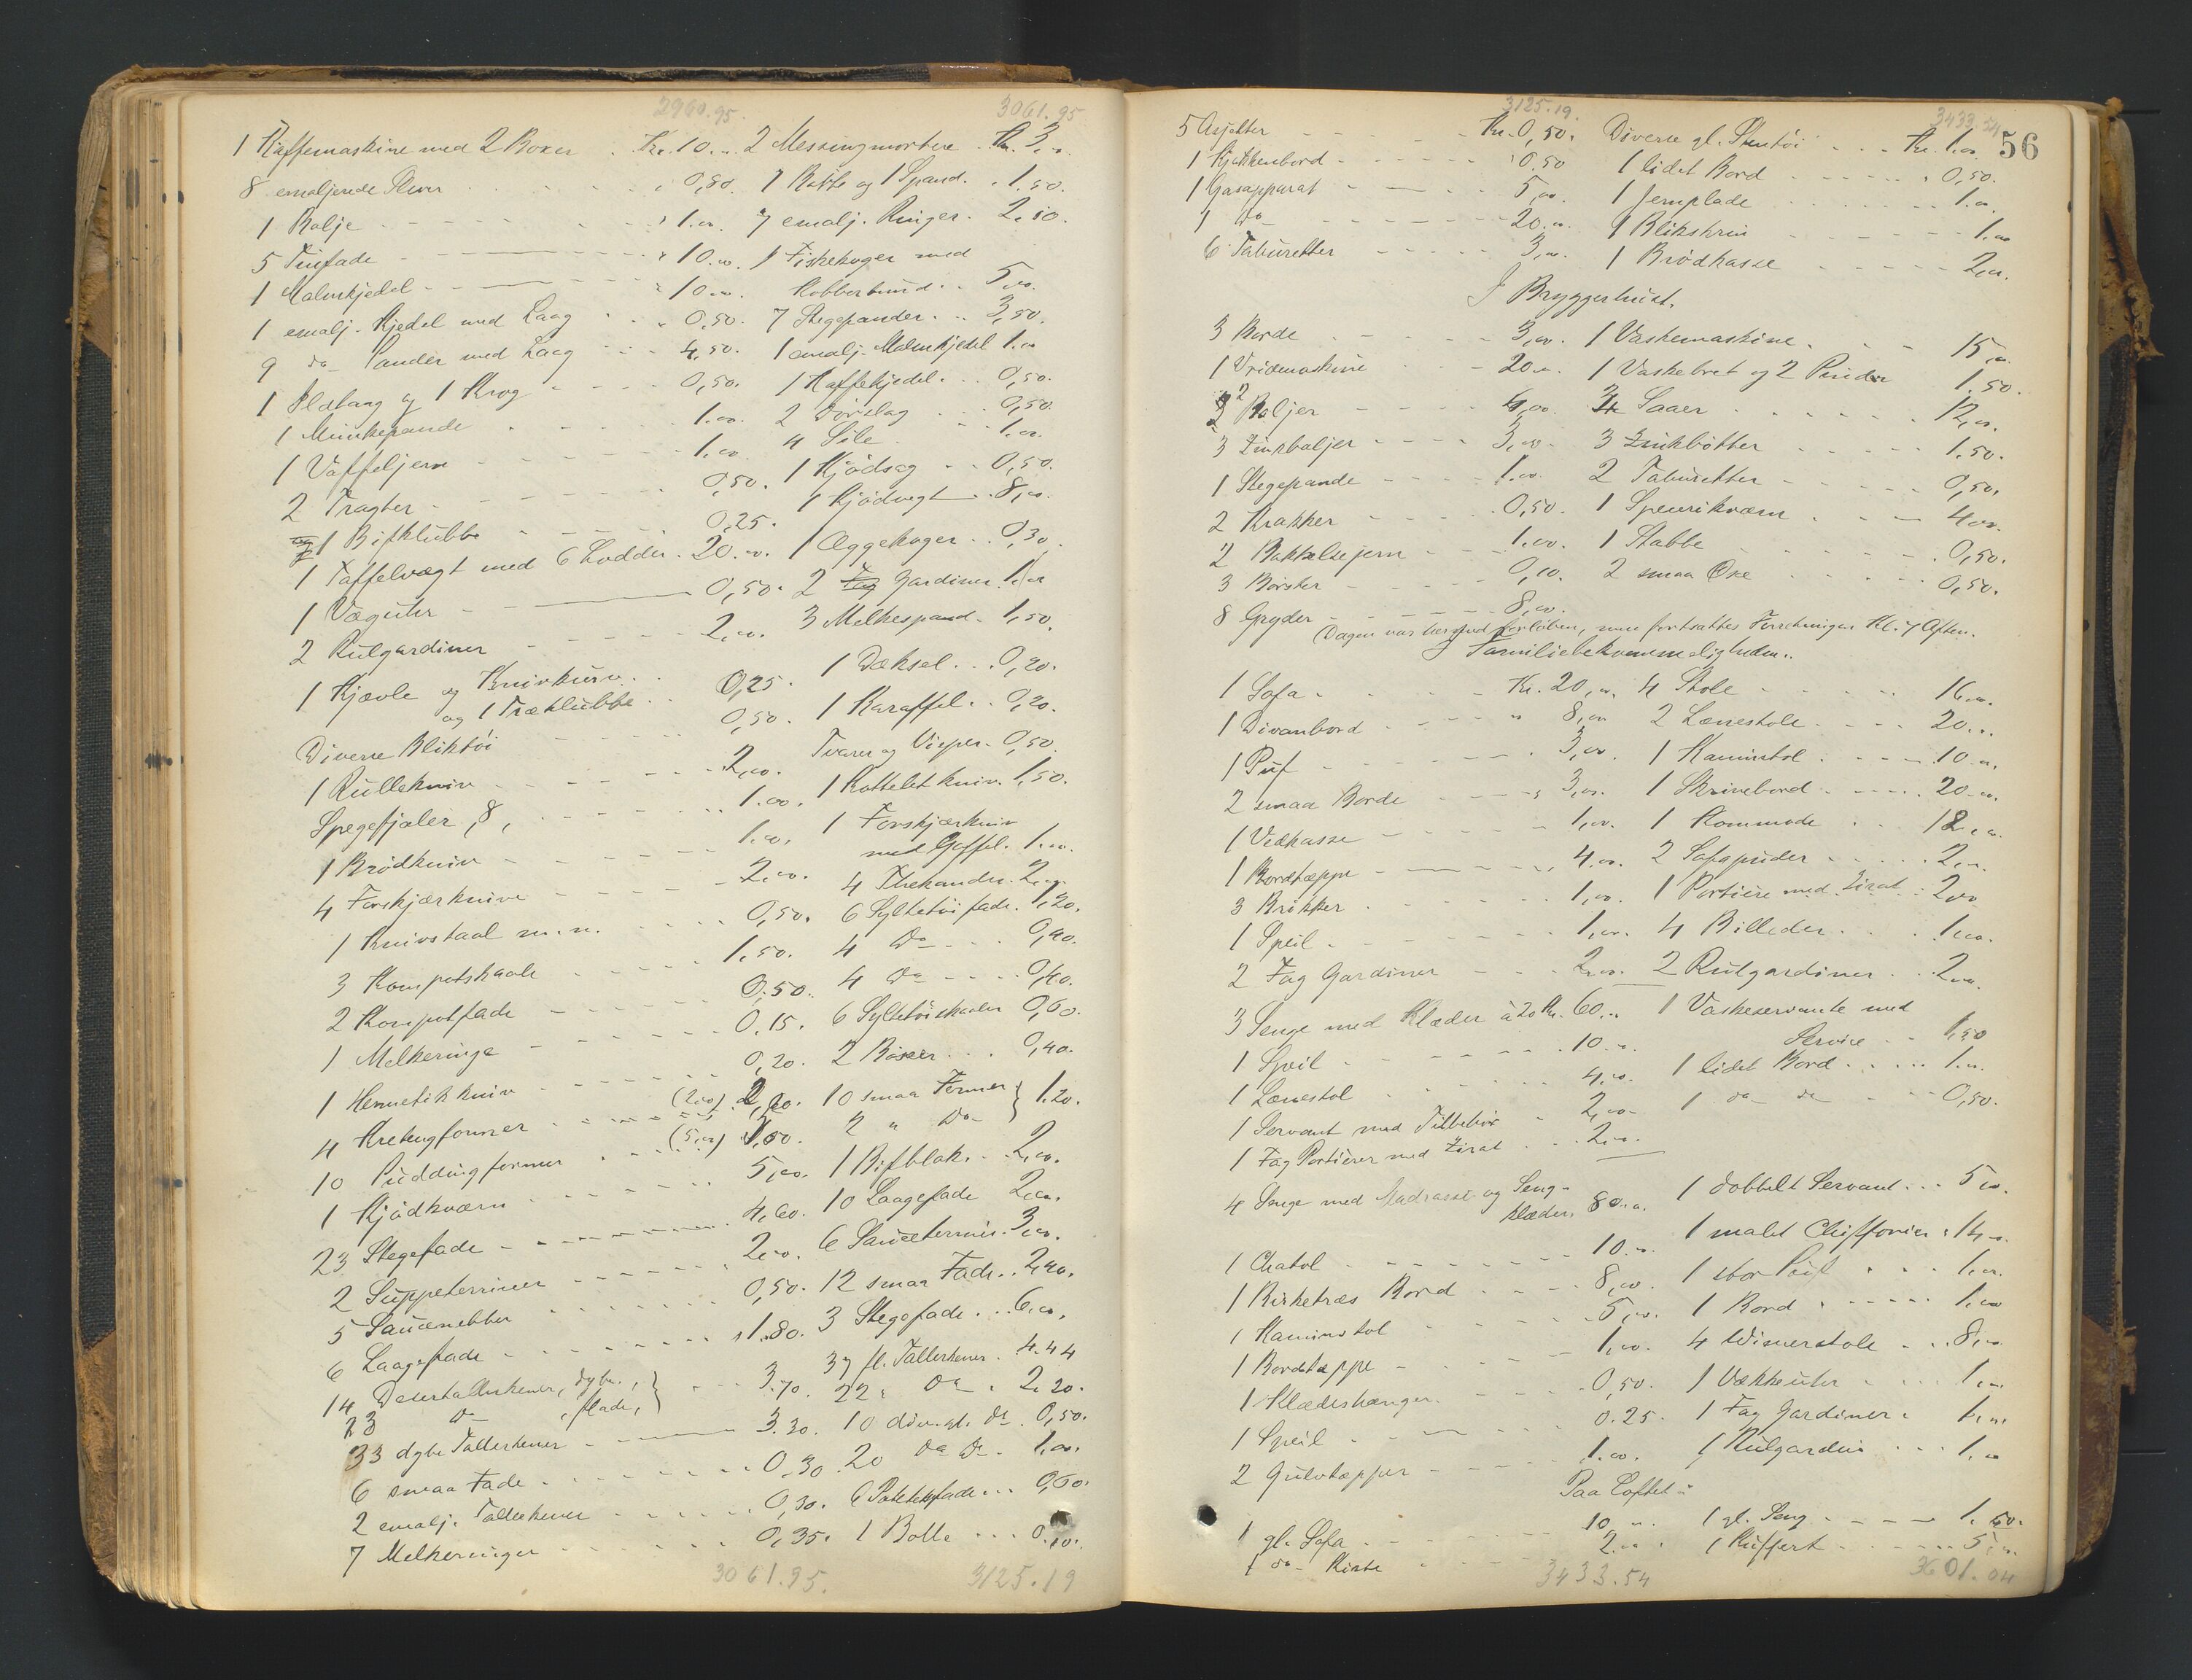 2960.95. 3061.95
1 Kaffemaskine med 2 Boxer . Kr. 10.00. 2 Messingmortere . Kr. 3,00.
8 emaljerede Slever 0,80. 1 Bøtte og 1 Spand. 1.50.
1 Balje 1.00. 7 emalj. Ringer. 2.10.
5 Tinfade 10.00. 1 Fiskekoger med
1 Malmkjedel 10.00. Kobberbund . . 5,00.
1 emalj. Kjedel med Laag 0,50. 7 Stegepander . . 3,50.
9 do Pander med Laag 4,50. 1 emalj. Malmkjedel 1.00
1 Ildtang og 1 Krog 0,50. 1 Kaffekjedel . . 0,50.
1 Munkepande 1.00. 2 Dørslag 0,50.
1 Vaffeljern 1.00. 4 Sile 1.00.
2 Tragter 0,50. 1 Kjødsag 0,50.
1 Bifklubbe 0,25. 1 Kjødvegt 8,00.
1 Taffelvægt med 6 Lodder . 20.00. 1 Æggekoger . . 0,30.
1 Væguhr 0,50. 2 Fag Gardiner 1.00
2 Rulgardiner 2,00. 3 Melkespand. 1,50.
1 Kjævle og Knivkurv . .
og 1 Træklubbe . . 0,25. 1 Dæksel . . . 0,20.
Diverse Bliktøi 0,50. 1 Karaffel . . 0,20.
1 Rullekniv 2,00. Tvarer og Visper. 0,50.
Spegefjæler, 8, 1.00. 1 Kottelet kniv. 1,50.
1 Brødkniv 1.00. 1 Forskjærkniv
med Gaffel. 1.00.
4 Forskjærknive 2,00. 4 Thekander. 2,00.
1 Knivstaal m.m. 0,50. 6 Syltetøifade. 1,20.
3 Kompotskaale 1,50. 4 Do 0,40.
2 Kompotfade 0,50. 4 Do 0,40.
1 Melkeringe 0,15. 6 Syltetøiskaaler 0,60.
1 Hermetikkniv 0,20. 2 Boxer . . . 0,40.
4 Kretengformer (2.00) 10 smaa Former } 1.20.
10 Puddingformer (5,00) 2 " Do
1 Kjødkværn 5,00. 1 Bifblok . . 2,00.
23 Stegefade 4,60. 10 Laagefade 2,00.
2 Suppeterriner 2,00. 6 Sauceterrin. 3,00.
5 Saucenebber 0,50. 12 smaa Fade . . 2,40.
6 Laagefade 1.80. 3 Stegefade . . . 6,00.
14 Deserttallerkener, dybe, } 3.70. 37 fl. Tallerkener . 4.44
23 Do , flade, 22 " Do . 2.20.
33 dybe Tallerkener 3.30. 10 div. gl. Do . 0,50.
6 smaa Fade 0.30. 20 Do Do 1,00.
2 emalj. Tallerkener 0,30. 6 Potetesfade . . . 0,60.
7 Melkeringer 0,35. 1 Bolle . . . 0.10.
3061.95. 3125.19
3125.19. 3433.54
56
5 Asjetter Kr. 0,50. Diverse gl. Stentøi . . . Kr. 1.00
1 Kjøkkenbord 0.50 1 lidet Bord 0,50.
1 Gasapparat 5,00. 1 Jernplade 1.00.
1 Do 20.00. 1 Blikskrin 1.00
6 Taburetter 3,00. 1 Brødkasse 2,00.
I Bryggerhuset.
3 Borde 3,00. 1 Vaskemaskine 15,00
1 Vridemaskine 20.00. 1 Vaskebret og 2 Pinder 1.50.
2 Baljer 4,00. 3 Saaer 12,00.
3 Zinkbaljer 3,00 3 Zinkbøtter 1.50.
1 Stegepande 1.00. 2 Taburetter 0,50.
2 Krakker 0,50. 1 Spenrikværn 4.00.
2 Bakkelsejern 1.00. 1 Stabbe 0,50.
3 Børster 0,10. 2 smaa Øxe 0,50.
8 Gryder 8,00.
(Dagen var hermed forløben, men fortsattes Forretningen Kl. 7 Aften.
I Familiebekvemmeligheden..
1 Sofa Kr. 20,00. 4 Stole 16.00.
1 Divanbord 8,00 2 Lænestole 20.00.
1 Puf 3,00. 1 Kaminstol 10.00.
2 smaa Borde 3,00. 1 Skrivebord 20.00.
1 Vedkasse 1,00. 1 Kommode 12.00.
1 Bordtæppe 4.00. 2 Sofapuder 2,00.
3 Brikker 1,00. 1 Portiere med Zirat 2,00
1 Speil 1,00. 4 Billeder 1,00.
2 Fag Gardiner 2,00. 2 Rulgardiner 2,00.
3 Senge med Klæder à 20 Kr. 60.00 1 Vaskeservante med
Service 1,50
1 Speil 10.00. 1 lidet Bord 1.00.
1 Lænestol 4,00. 1 do do 0,50.
1 Servant med Tilbehør 2,00
1 Fag Portierer med Zirat 2,00.
4 Senge med Madrasser og Seng-
klæder. 80.00. 1 dobbelt Servant . . . 5,00.
1 Chatol 10.00. 1 malet Chiffonier 14,00.
1 Birketræs Bord 8,00. 1 stor Puf 1,00.
1 Kaminstol 5,00. 1 Bord 1,00
1 Bordtæppe 1,00. 4 Wienerstole 8,00
1 Klædeshænger 0,50. 1 Vækkeuhr 1,00
1 Speil 0.25. 1 Fag Gardiner 1,00.
2 Gulvtæpper 1.00. 1 Rulgardin 1,00
Paa Loftet:
1 gl. Sofa 10,00. 1 gl. Seng 1.50.
1 do Kiste 2.00. 1 Kuffert 5,00.
3433.54 3601.04